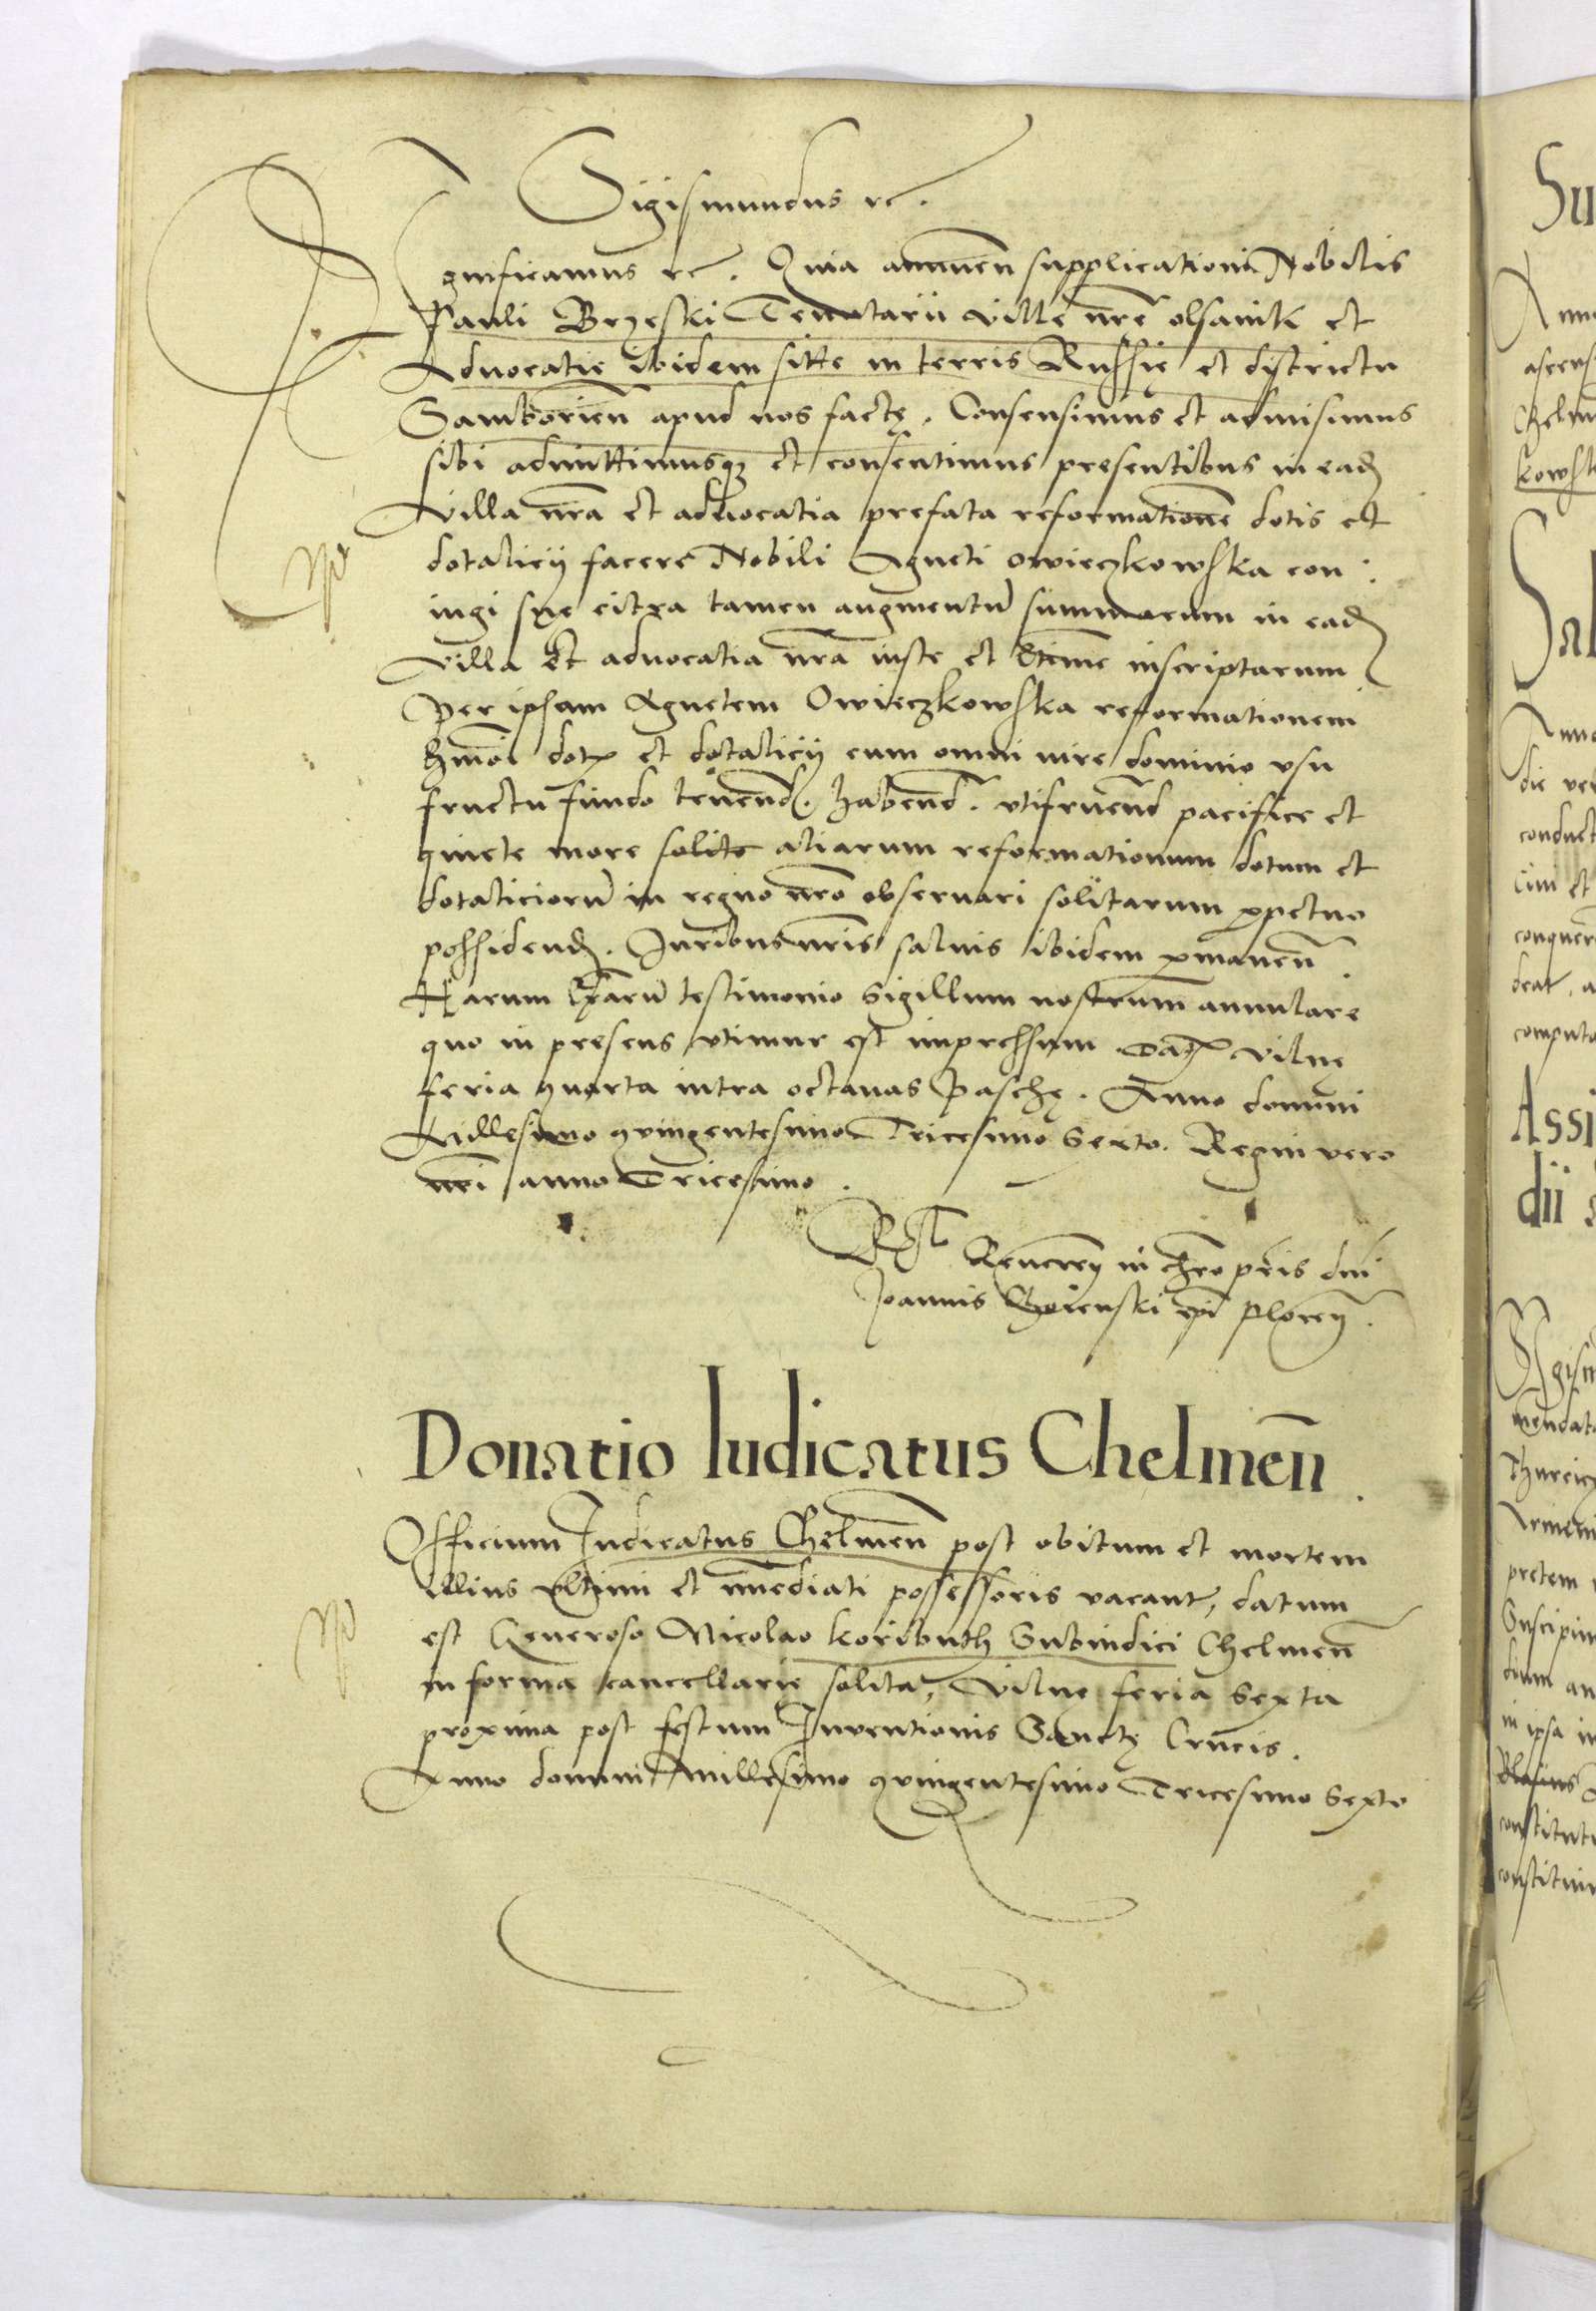 Sigismundus rc.
Significamus rc. Quia annuen̄ supplicationi Nobilis
Pauli Brzeski Tenutarii ville nr̄e olsanik et
Advocatie ibidem sitte in terris Russię et districtu
Samborien̄ apud nos factę. Consensimus et admisimus
sibi admittimusqꝫ et consentimus presentibus in eadꝫ
villa nr̄a et advocatia prefata reformationē dotis et
dotalicij facere Nobili Agneti owieczkowska con:
iugi suę citra tamen augmentū summarum in eadꝫ
villa et advocatia nr̄a iuste et ltīme inscriptarum
Per ipsam Agnetem Owieczkowska reformationem
hm̄oi dotꝭ et dotalicij cum omni iure dominio usu
fructu fundo tenend. habend. utifruend pacifice et
quiete more solito aliarum reformationum dotum et
dotaliciorū in regno nr̄o observari solitarum ꝑpetuo
possidendꝫ. Iuribus nr̄is salvis ibidem ꝑmanen̄.
Harum lr̄arū testimonio sigillum nostrum annulare
quo in presens utimur est impressum. Datꝫ vilnę
feria quarta intra octavas Paschę. Anno domini
Millesimo quingentesimo Tricesimo Sexto. Regni vero
nr̄i anno Tricesimo.
Rel̄ Reveren̄ in chr̄o pr̄is dn̄i
Joannis Choienski ep̄i Plocen̄.
Donatio Iudicatus Chelmen̄.
Officium Iudicatus Chelmen̄ post obitum et mortem
illius ultimi et immediati possessoris vacans, datum
est Generoso Nicolao koributh Subiudici Chelmen̄
in forma cancellarię solita, Vilnę feria Sexta
proxima post festum Inventionis Sanctę Crucis.
Anno domini Millesimo quingentesimo Tricesimo Sexto